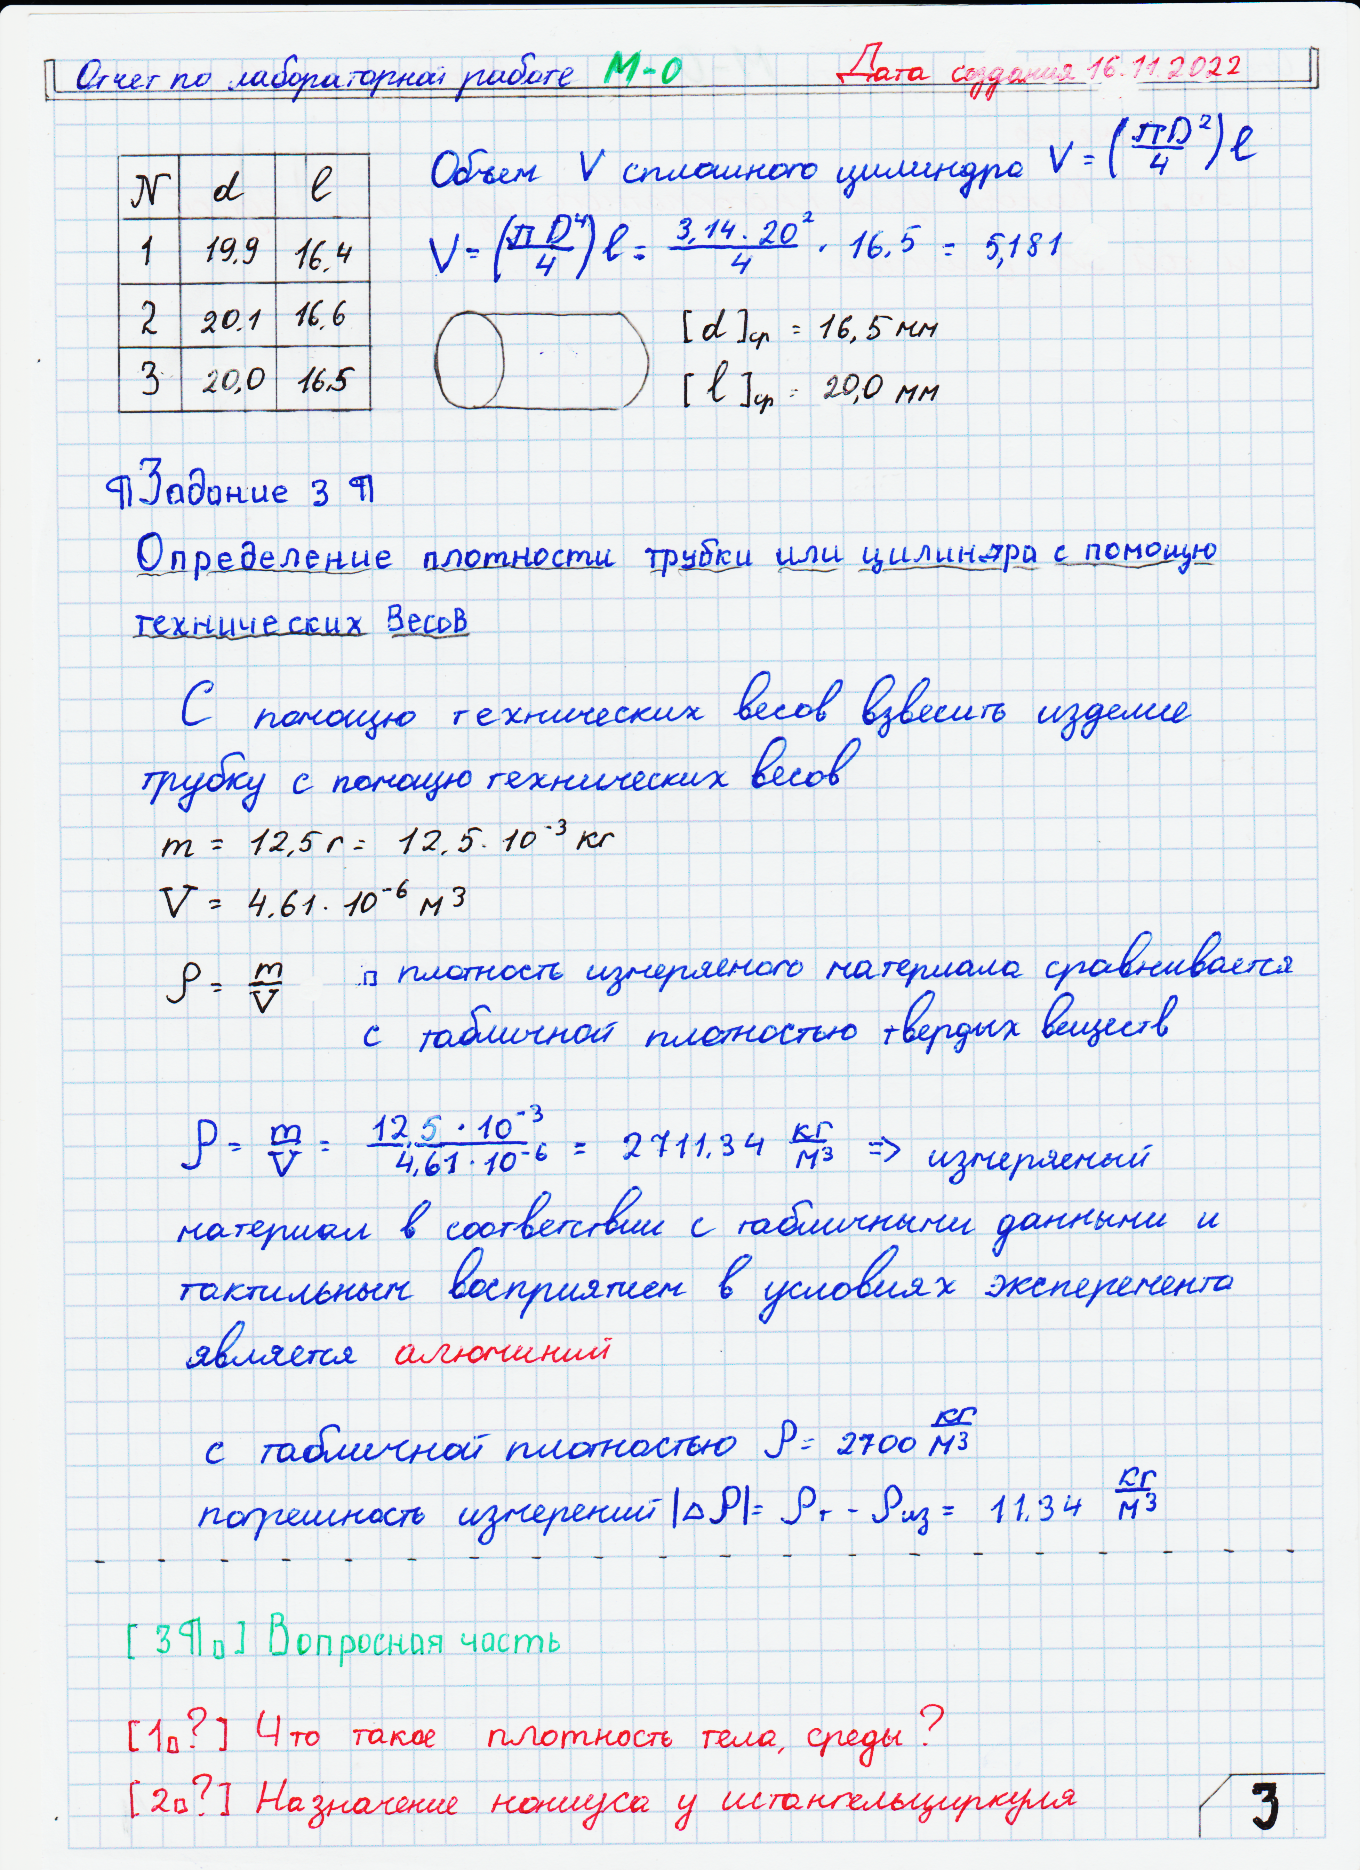 Отчет по лабораторной работе М-0 Дата создания 16.11.2022
N d l
1 19,9 16,4
2 20,1 16,6
3 20,0 16,5
Объем V сплошного цилиндра V = (πD²/4) l
V = (πD⁴/4) l = 3,14 · 20²/4 · 16,5 = 5,181
[d]ср = 16,5 мм
[l]ср = 20,0 мм
¶ Задание 3 ¶
Определение плотности трубки или цилиндра с помощю
технических весов
С помощю технических весов взвесить изделие
трубку с помощю технических весов
m = 12,5 г = 12,5 · 10⁻³ кг
V = 4,61 · 10⁻⁶ м³
ρ = m/V плотность измеряемого материала сравнивается
с табличной плотностью твердых веществ
ρ = m/V = 12,5 · 10⁻³/4,61 · 10⁻⁶ = 2711,34 кг/м³ => измеряемый
материал в соответствии с табличными данными и
тактильным восприятием в условиях эксперемента
является алюминий
с табличной плотностью ρ = 2700 кг/м³
погрешность измерений |Δρ| = ρт - ρиз = 11,34 кг/м³
[3¶▯] Вопросная часть
[1▯?] Что такое плотность тела, среды?
[2▯?] Назначение нониуса у штангельциркуля
3